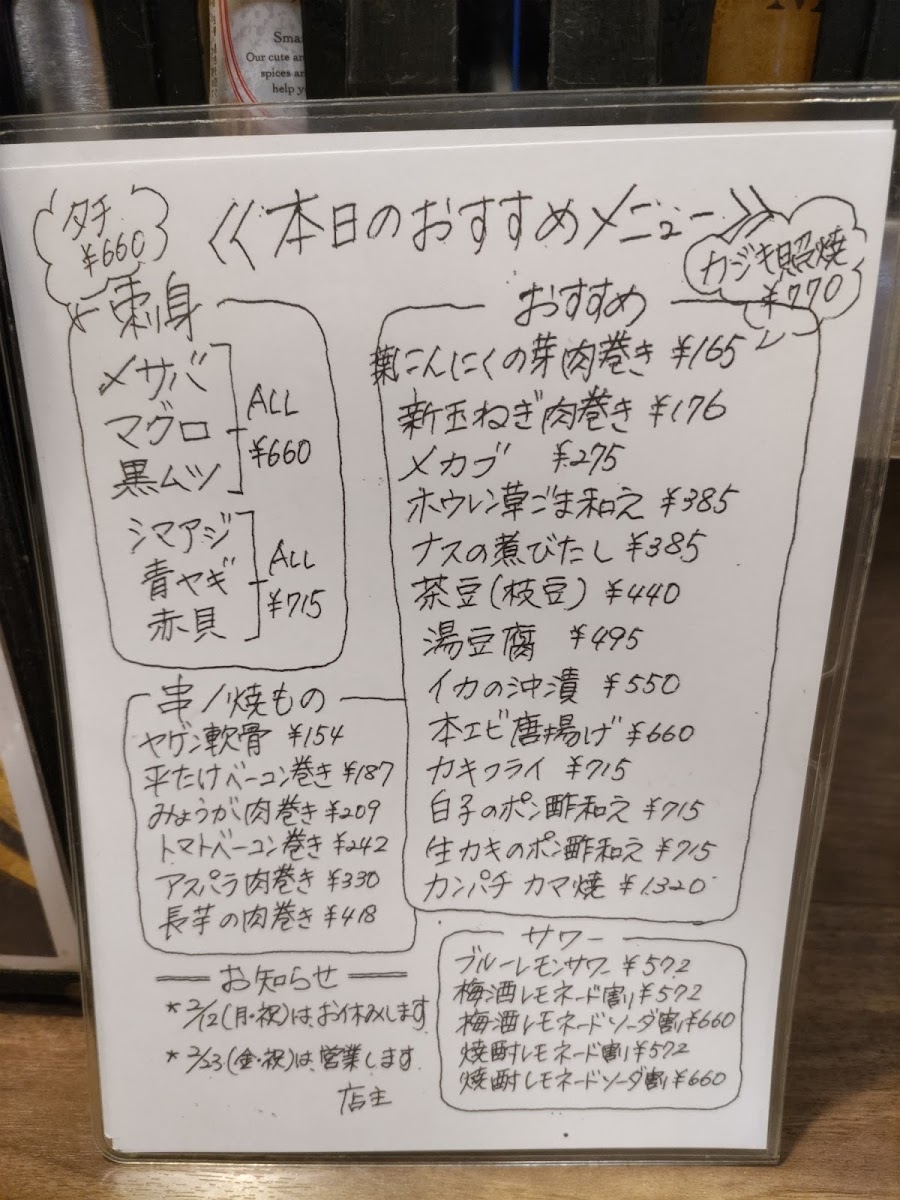 Sma
Our cute an
spices an
help y
《本日のおすすめメニュー》
タチ
¥660
カジキ照焼
¥770
刺身
メサバ
マグロ
黒ムツ
ALL
¥660
シマアジ
青ヤギ
赤貝
ALL
¥715
おすすめ
葉にんにくの芽肉巻き ¥165
新玉ねぎ肉巻き ¥176
メカブ ¥275
ホウレン草ごま和え ¥385
ナスの煮びたし ¥385
茶豆(枝豆) ¥440
湯豆腐 ¥495
イカの沖漬 ¥550
本エビ唐揚げ ¥660
カキフライ ¥715
白子のポン酢和え ¥715
生カキのポン酢和え ¥715
カンパチ カマ焼 ¥1,320
串/焼もの
ヤゲン軟骨 ¥154
平たけベーコン巻き ¥187
みょうが肉巻き ¥209
トマトベーコン巻き ¥242
アスパラ肉巻き ¥330
長芋の肉巻き ¥418
サワー
ブルーレモンサワー ¥572
梅酒レモネード割り ¥572
梅酒レモネードソーダ割り ¥660
焼酎レモネード割り ¥572
焼酎レモネードソーダ割 ¥660
お知らせ
*2/12(月・祝)は、お休みします
*2/23(金・祝)は、営業します
店主